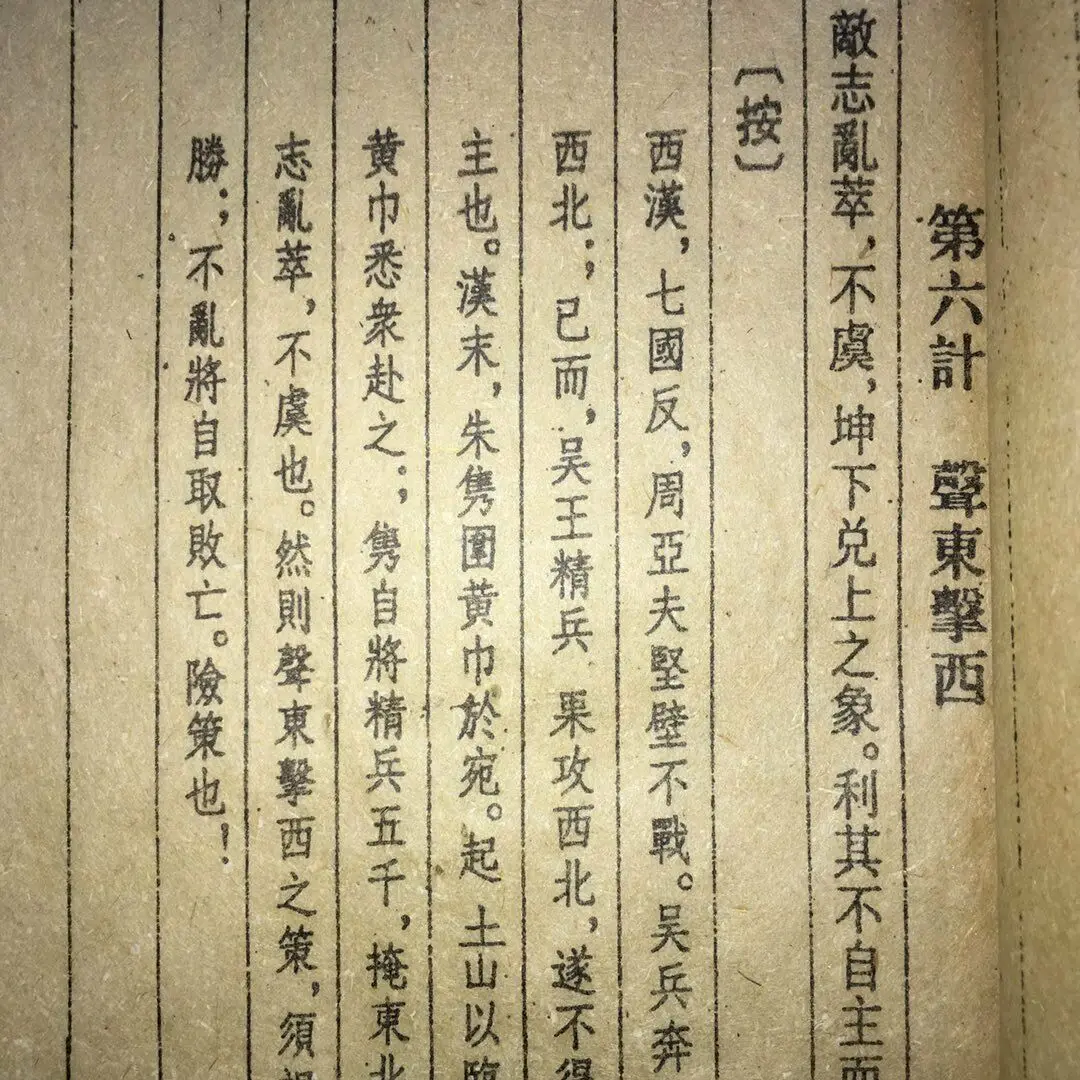 第六計 聲東擊西
敵志亂萃，不虞，坤下兑上之象。利其不自主而
〔按〕
西漢，七國反，周亞夫堅壁不戰。吴兵奔
西北；已而，吴王精兵 果攻西北，遂不得
主也。漢末，朱雋圍黄巾於宛。起 土山以臨
黄巾悉衆赴之；雋自將精兵五千，掩東北
志亂萃，不虞也。然則聲東擊西之策，須
勝；不亂將自取敗亡。險策也！